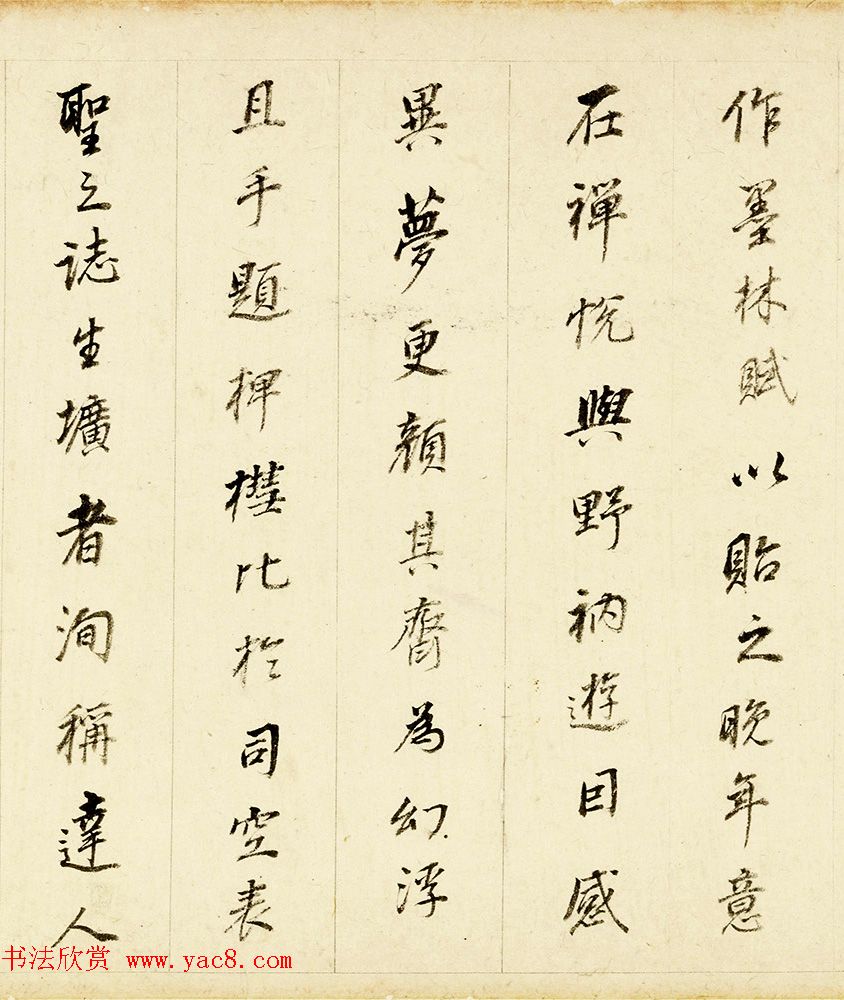 作墨林賦以貽之晚年意
在禪悅與野衲遊因感
異夢更顏其齋為幻浮
且手題椑櫘比於司空表
聖之誌生壙者洵稱達人
书法欣赏 www.yac8.com